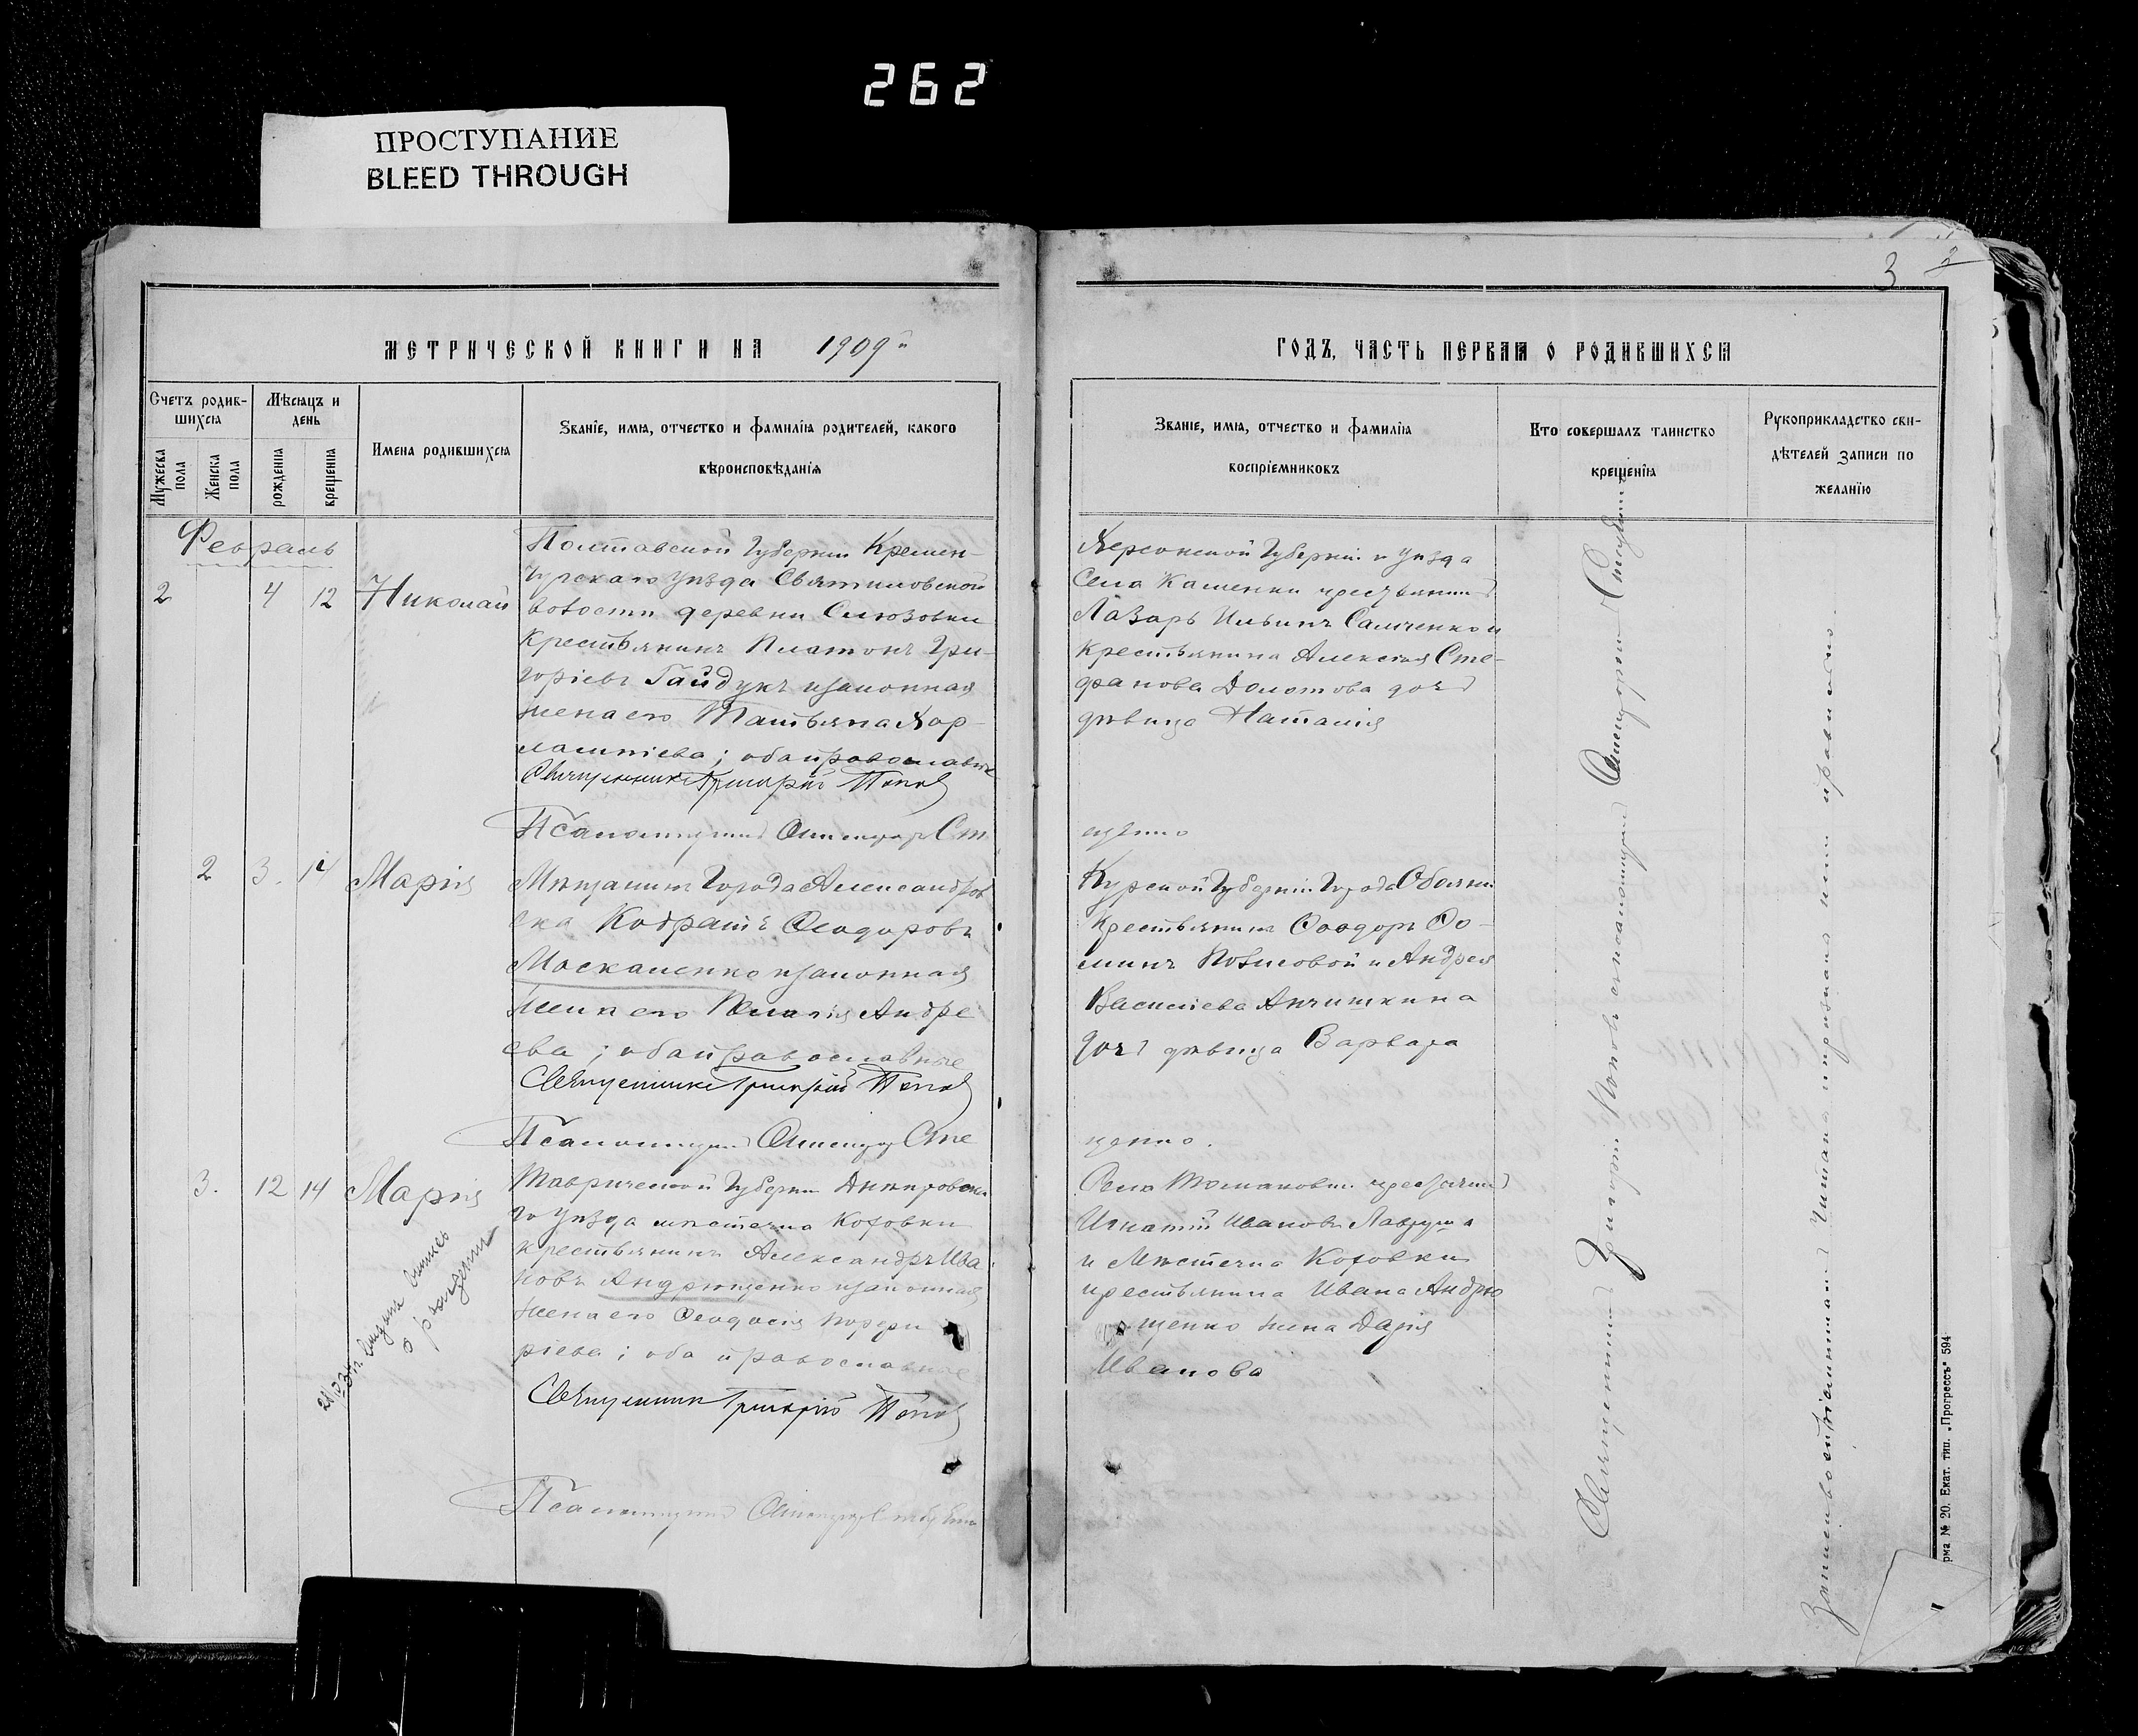 262
ПРОСТУПАНИЕ
BLEED THROUGH
3
МЕТРИЧЕСКОЙ КНИГИ НА 1909й
ГОДЪ, ЧАСТЬ ПЕРВАЯ О РОДИВШИХСЯ
Счетъ родив-
шихся
Мужеска
пола
Женска
пола
Мѣсяцъ и
день
рожденія
крещенія
Имена родившихся
Званіе, имя, отчество и фамилія родителей, какого
вѣроисповѣданія
Званіе, имя, отчество и фамилія
воспріемниковъ
Кто совершалъ таинство
крещенія
Рукоприкладство сви-
дѣтелей записи по
желанію
Февраль
2 4 12 Николай
Полтавской Губерніи Кремен-
чугскаго уѣзда Святиловской
волости деревни
Крестьянинъ Платонъ Гри-
горіевъ Гайдукъ и законная
жена его Татьяна Хар-
лампіева; оба православные
Священникъ Григорій Поповъ
Псаломщикъ
Херсонской Губерніи и уѣзда
Села Каменки крестьянинъ
Лазарь Ильинъ Самченко и
Крестьянина Алексія Сте-
фанова Долотова дочь
дѣвица Наталія
щенко
2 3 14 Марія
Мѣщанинъ Города Александров
ска Кодратъ Ѳеодоровъ
Москаленко и законная
жена его Андре
ева; оба православные
Священникъ Григорій Поповъ
Псаломщикъ Сте
Курской Губерніи Города Обояни
Крестьянинъ Ѳеодоръ Ѳо-
минъ и Андрея
Василіева Анчишкина
дочь дѣвица Варвара
щенко.
3. 12 14 Марія
Таврической Губерніи Днѣпровска
го уѣзда мѣстечка Каховки
крестьянинъ Александръ Ива
новъ Андрющенко и законная
жена его Ѳеодосія Порфи
ріева; оба православные
Священникъ Григорій Поповъ
Псаломщикъ
о рождении
Села Томаковки крестьянинъ
Игнатій Ивановъ
и Мѣстечка Каховки
крестьянина Ивана Андрю
щенко жена Дарія
Иванова
Священникъ Григорій Поповъ съ псаломщикомъ
рма № 20. Екат. тип. „Прогрессъ" 594